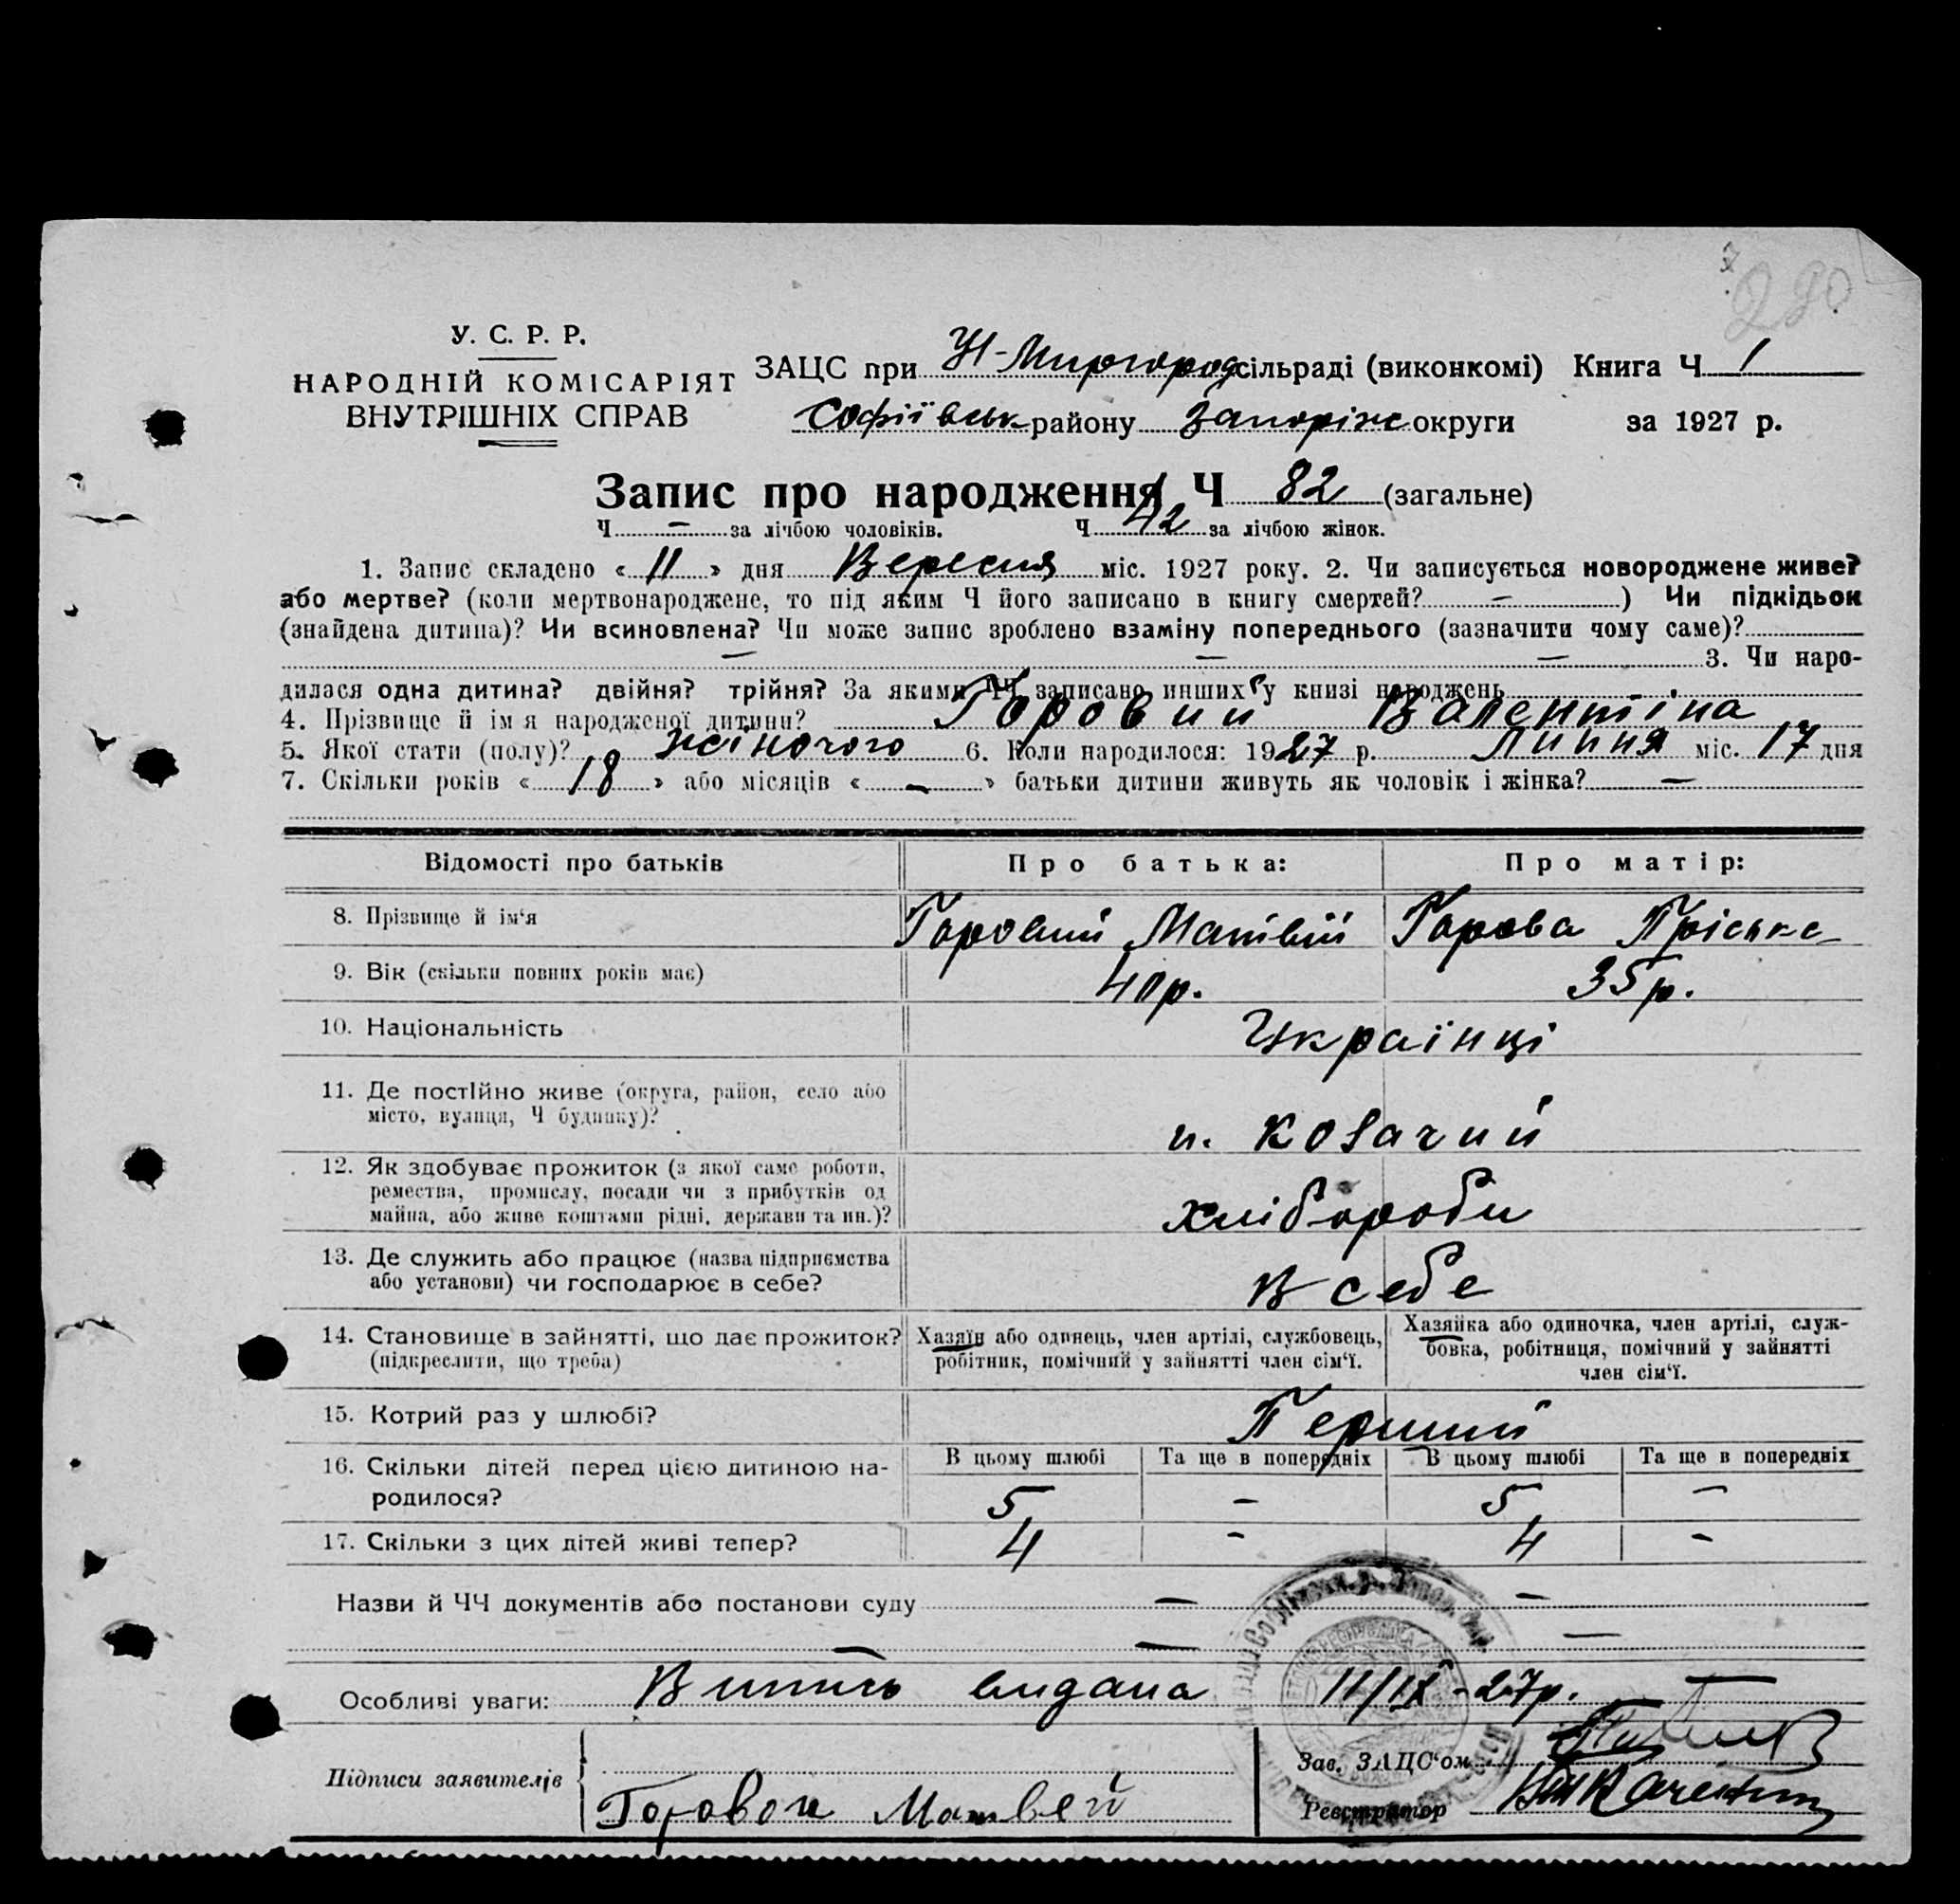 280
У. С. Р. Р.
НАРОДНІЙ КОМІСАРІЯТ
ВНУТРІШНІХ СПРАВ
ЗАЦС при Н-Миргород сільраді (виконкомі) Книга Ч 1
Софіївськ району Запоріж округи за 1927 р.
Запис про народження Ч 82 (загальне)
Ч — за лічбою чоловіків. Ч 42 за лічбою жінок.
1. Запис складено « 11 » дня Вересня міс. 1927 року. 2. Чи записується новороджене живе?
або мертве? (коли мертвонароджене, то під яким Ч його записано в книгу смертей? — ) Чи підкідьок
(знайдена дитина)? Чи всиновлена? Чи може запис зроблено взаміну попереднього (зазначити чому саме)?
— — — 3. Чи наро-
дилася одна дитина? двійня? трійня? За якими ЧЧ записано инших у книзі народжень
4. Прізвище й ім я народженої дитини? Горовий Валентіна
5. Якої стати (полу)? жіночого 6. Коли народилося: 1927 р. Липня міс. 17 дня
7. Скільки років « 18 » або місяців « — » батьки дитини живуть як чоловік і жінка? —
Відомості про батьків Про батька: Про матір:
8. Прізвище й ім‘я Горовий Матівій Горова Пріська
9. Вік (скільки повних років має) 40р. 35р.
10. Національність Українці
11. Де постійно живе (округа, район, село або
місто, вулиця, Ч будинку)?
п. Козачий
12. Як здобуває прожиток (з якої саме роботи,
ремества, промислу, посади чи з прибутків од
майна, або живе коштами рідні, держави та ин.)?
хлібороби
13. Де служить або працює (назва підприємства
або установи) чи господарює в себе?
В себе
14. Становище в зайнятті, що дає прожиток?
(підкреслити, що треба)
Хазяїн або одинець, член артілі, службовець,
робітник, помічний у зайнятті член сім‘ї.
Хазяйка або одиночка, член артілі, служ-
бовка, робітниця, помічний у зайнятті
член сім‘ї.
15. Котрий раз у шлюбі? Перший
16. Скільки дітей перед цією дитиною на-
родилося?
В цьому шлюбі Та ще в попередніх В цьому шлюбі Та ще в попередніх
5 — 5 —
17. Скільки з цих дітей живі тепер? 4 - 4 -
Назви й ЧЧ документів або постанови суду — —
— — —
Особливі уваги: Витись видана 11/IX-27р.
Підписи заявителів
Горовой Матвей
Зав. ЗАЦС‘ом
Реєстратор